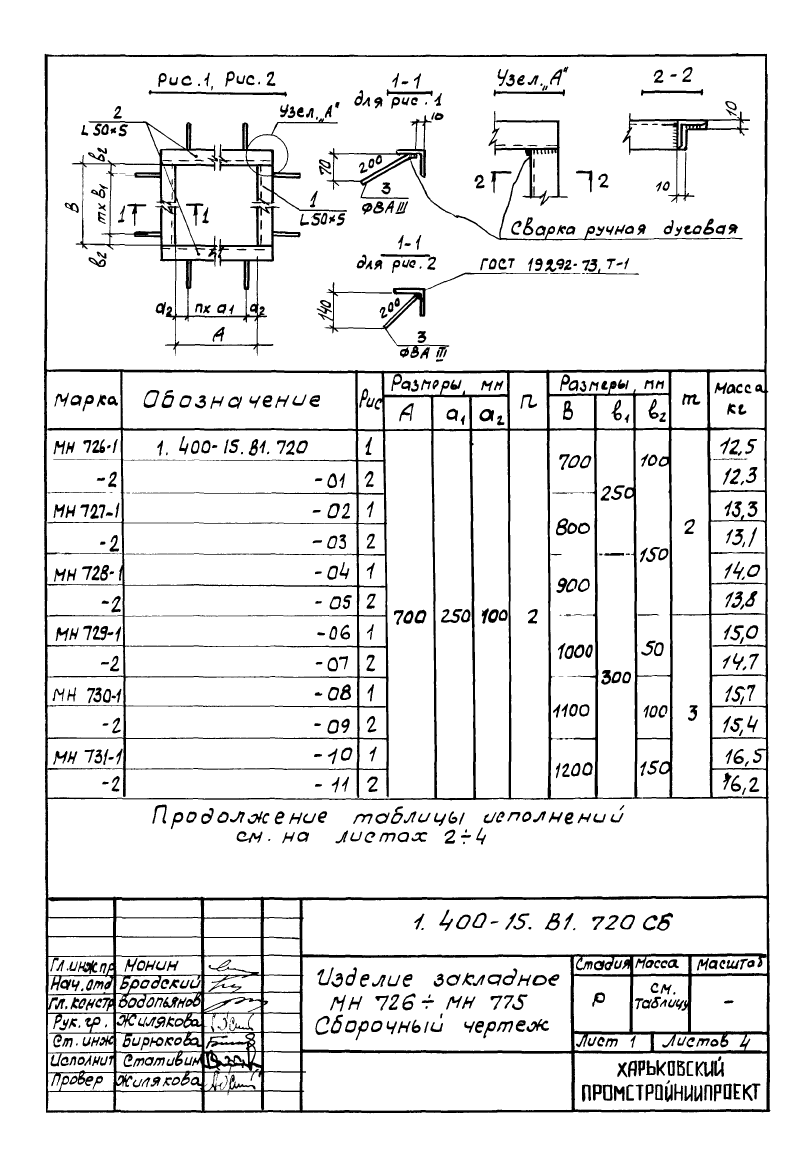 Рис. 1, Рис. 2
1-1
для рис. 1
Узел „А"
2-2
2
L 50×5
Узел „А"
1
L 50×5
в2
m× в1
В
в2
1 1
а2 n× а1 а2
А
10
70
200
3
Ø8АIII
2 2
10
10
Сварка ручная дуговая
1-1
для рис. 2
ГОСТ 19292-73, Т-1
140
200
3
Ø8А III
Марка Обозначение Рис Размеры, мм n Размеры, мм m Масса кг
А а1 а2 В в1 в2
МН 726-1 1. 400-15. В1. 720 1 700 250 100 2 700 250 100 2 12,5
-2 -01 2 12,3
МН 727-1 -02 1 800 150 13,3
-2 -03 2 13,1
МН 728-1 -04 1 900 14,0
-2 -05 2 13,8
МН 729-1 -06 1 1000 300 50 3 15,0
-2 -07 2 14,7
МН 730-1 -08 1 1100 100 15,7
-2 -09 2 15,4
МН 731-1 -10 1 1200 150 16,5
-2 -11 2 16,2
Продолжение таблицы исполнений
см. на листах 2÷4
1. 400-15. В1. 720 СБ
Гл.инж пр Монин
Нач. отд Бродский
Гл. констр Водопьянов
Рук. гр. Жилякова
Ст. инж Бирюкова
Исполнит Стативин
Провер Жилякова
Изделие закладное
МН 726 ÷ МН 775
Сборочный чертеж
Стадия Масса Масштаб
Р см. таблицу –
Лист 1 Листов 4
ХАРЬКОВСКИЙ
ПРОМСТРОЙНИИПРОЕКТ